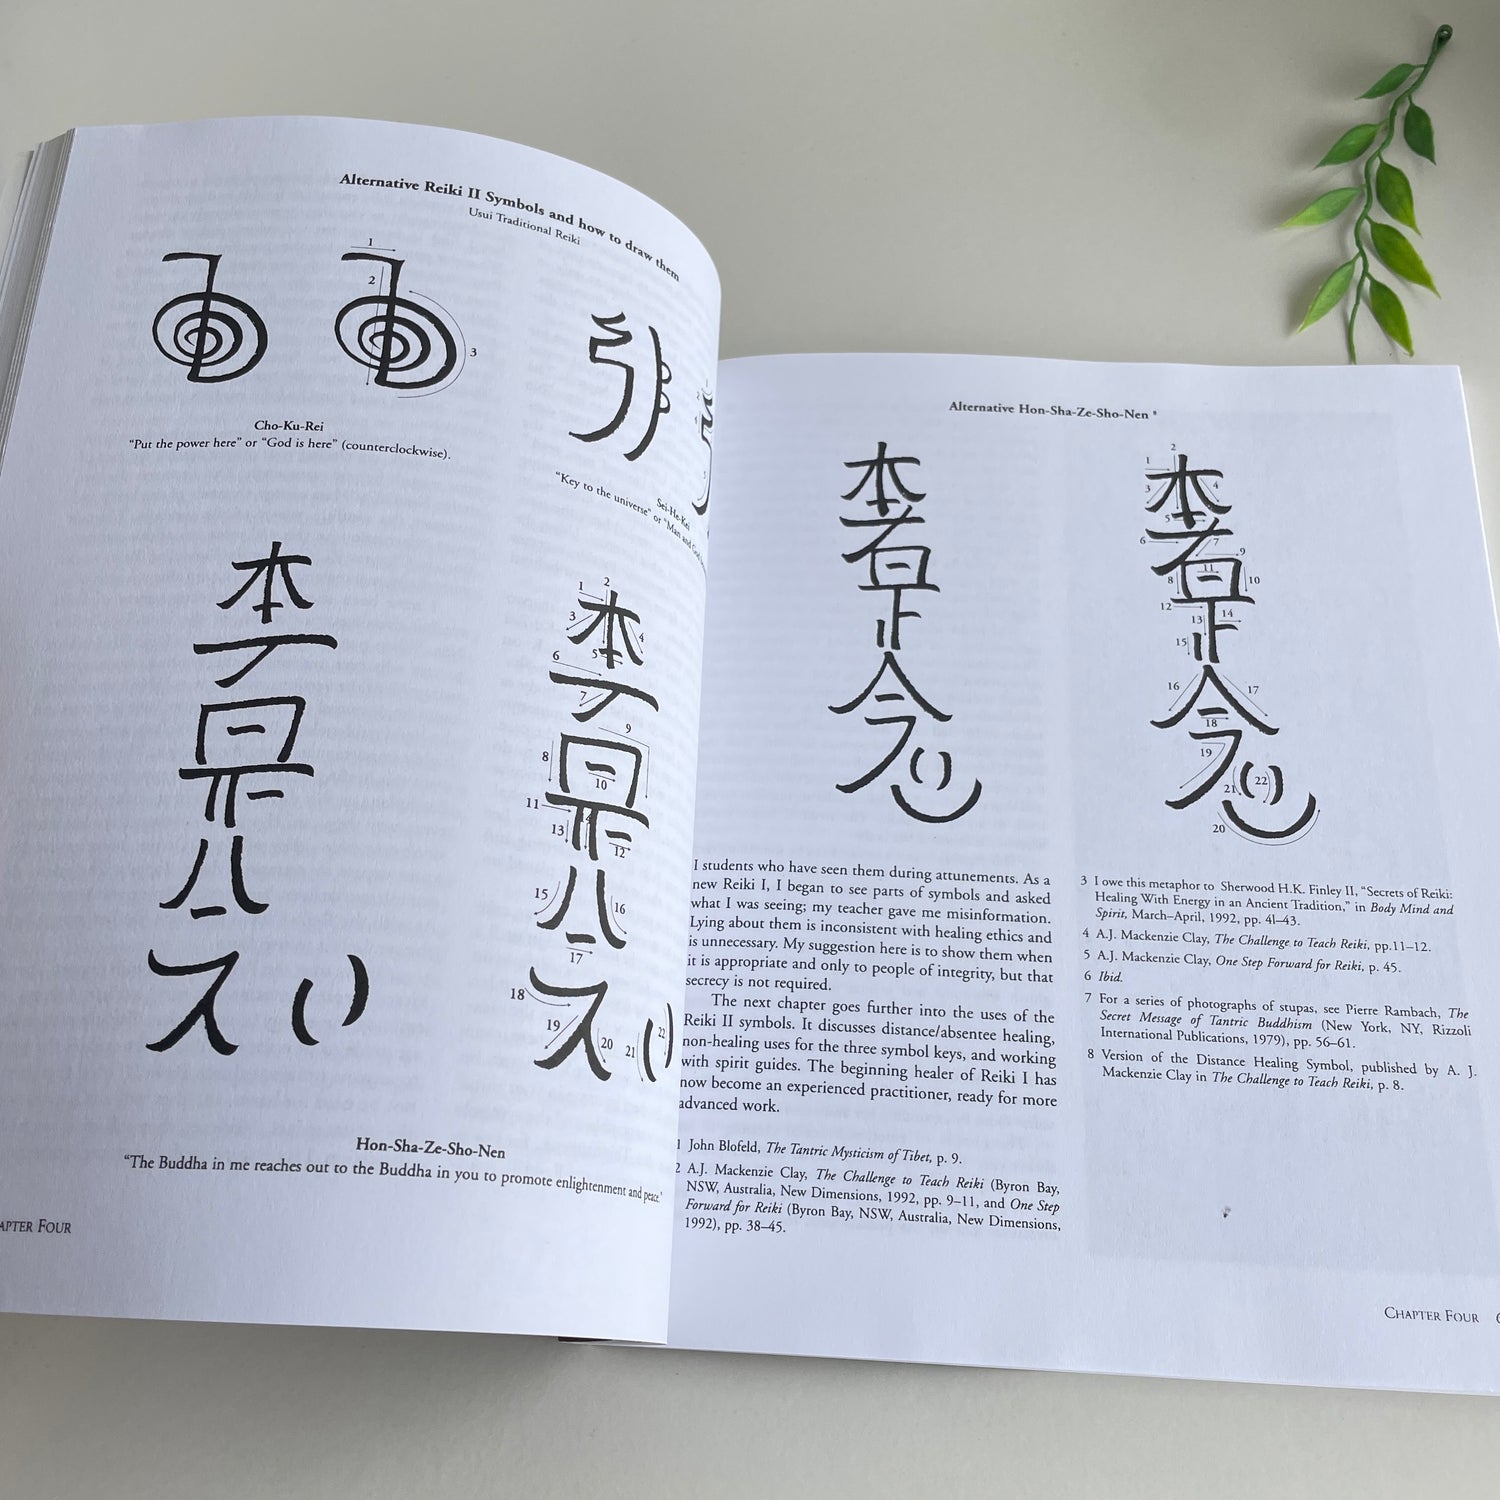 Alternative Reiki II Symbols and how to draw them
Usui Traditional Reiki
1
2
3
Cho-Ku-Rei
"Put the power here" or "God is here" (counterclockwise).
Sei-He-Kei
"Key to the universe" or "Man and God
1
2
3
4
5
6
7
8
9
10
11
12
13
14
15
16
17
18
19
20
21
22
Hon-Sha-Ze-Sho-Nen
"The Buddha in me reaches out to the Buddha in you to promote enlightenment and peace."
CHAPTER FOUR
Alternative Hon-Sha-Ze-Sho-Nen 8
1
2
3
4
5
6
7
8
9
10
11
12
13
14
15
16
17
18
19
20
21
22
I students who have seen them during attunements. As a
new Reiki I, I began to see parts of symbols and asked
what I was seeing; my teacher gave me misinformation.
Lying about them is inconsistent with healing ethics and
is unnecessary. My suggestion here is to show them when
it is appropriate and only to people of integrity, but that
secrecy is not required.
The next chapter goes further into the uses of the
Reiki II symbols. It discusses distance/absentee healing,
non-healing uses for the three symbol keys, and working
with spirit guides. The beginning healer of Reiki I has
now become an experienced practitioner, ready for more
advanced work.
1 John Blofeld, The Tantric Mysticism of Tibet, p. 9.
2 A.J. Mackenzie Clay, The Challenge to Teach Reiki (Byron Bay,
NSW, Australia, New Dimensions, 1992, pp. 9–11, and One Step
Forward for Reiki (Byron Bay, NSW, Australia, New Dimensions,
1992), pp. 38–45.
3 I owe this metaphor to Sherwood H.K. Finley II, "Secrets of Reiki:
Healing With Energy in an Ancient Tradition," in Body Mind and
Spirit, March–April, 1992, pp. 41–43.
4 A.J. Mackenzie Clay, The Challenge to Teach Reiki, pp.11–12.
5 A.J. Mackenzie Clay, One Step Forward for Reiki, p. 45.
6 Ibid.
7 For a series of photographs of stupas, see Pierre Rambach, The
Secret Message of Tantric Buddhism (New York, NY, Rizzoli
International Publications, 1979), pp. 56–61.
8 Version of the Distance Healing Symbol, published by A. J.
Mackenzie Clay in The Challenge to Teach Reiki, p. 8.
CHAPTER FOUR